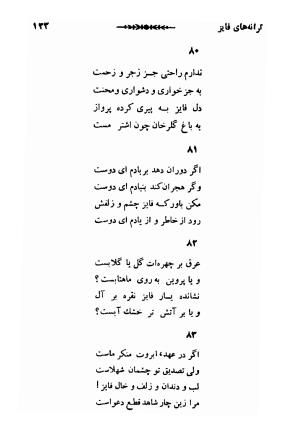 ترانه‌های فایز ۱۳۳
۸۰
ندارم راحتی جـز زجر و زحمت
به جز خواری و دشواری ومحنت
دل فایز به پیری کرده پرواز
به باغ گلرخان چون اشتر مست
۸۱
اگر دوران دهد بربادم ای دوست
وگر هجران کند بنیادم ای دوست
مکن باورکه فایز چشم و زلفش
رود ازخاطر و از یادم ای دوست
۸۲
عرق بر چهره‌ات گل یا گلابست
و یا پروین به روی ماهتابست؟
نشانده یار فایز نقره بر آل
و یا بر آتشی تر خشك آبست؟
۸۳
اگر در عهد، ابروت منکر ماست
ولی تصدیق تو چشمان شهلاست
لب و دندان و زلف و خال فایز!
مرا زین چار شاهد قطع دعواست